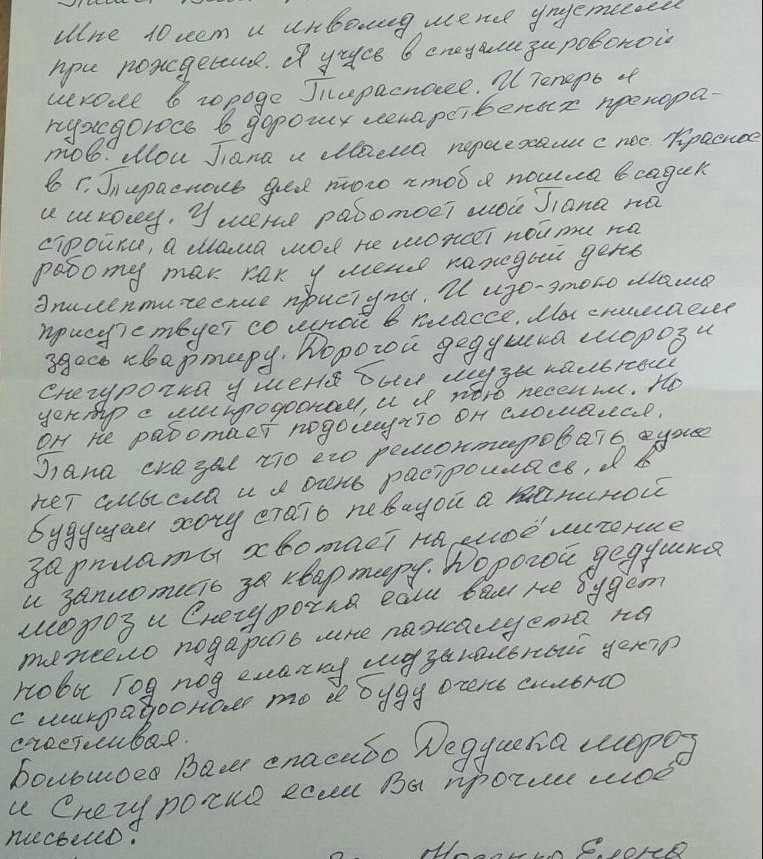 Мне 10 лет и инволид меня упустили
при рождения. Я учусь в специализировоной
школе в городе Тирасполе. И теперь я
нуждоюсь в дорогих лекарственых препора-
тов. Мои Папа и Мама переехали с пос. Красное
в г. Тирасполь для того чтоб я пошла в садик
и школу. У меня работоет мой Папа на
стройки, а Мама моя не может пойти на
работу так как у меня каждый день
эпилептические приступы. И изо-этого Мама
присутствует со мной в классе. Мы снимаем
здесь квартиру. Дорогой дедушка мороз и
снегурочка у меня был музыкальный
центр с микродооном, и я пою песенки. Но
он не работает подомучто он сломался.
Папа сказал что его ремонтировать уже
нет смысла и я очень растроилась. Я в
будущем хочу стать певицой а папиной
зарплаты хвотает на моё личение
и заплотить за квартиру. Дорогой дедушка
мороз и Снегурочка если вам не будет
тяжело подарить мне пажалуста на
новы Год под елачку музыкальный центр
с микрадооном то я буду очень сильно
счастливая.
Большоеа Вам спасибо Дедушка мороз
и Снегурочка если Вы прочли моё
письмо.
Елена